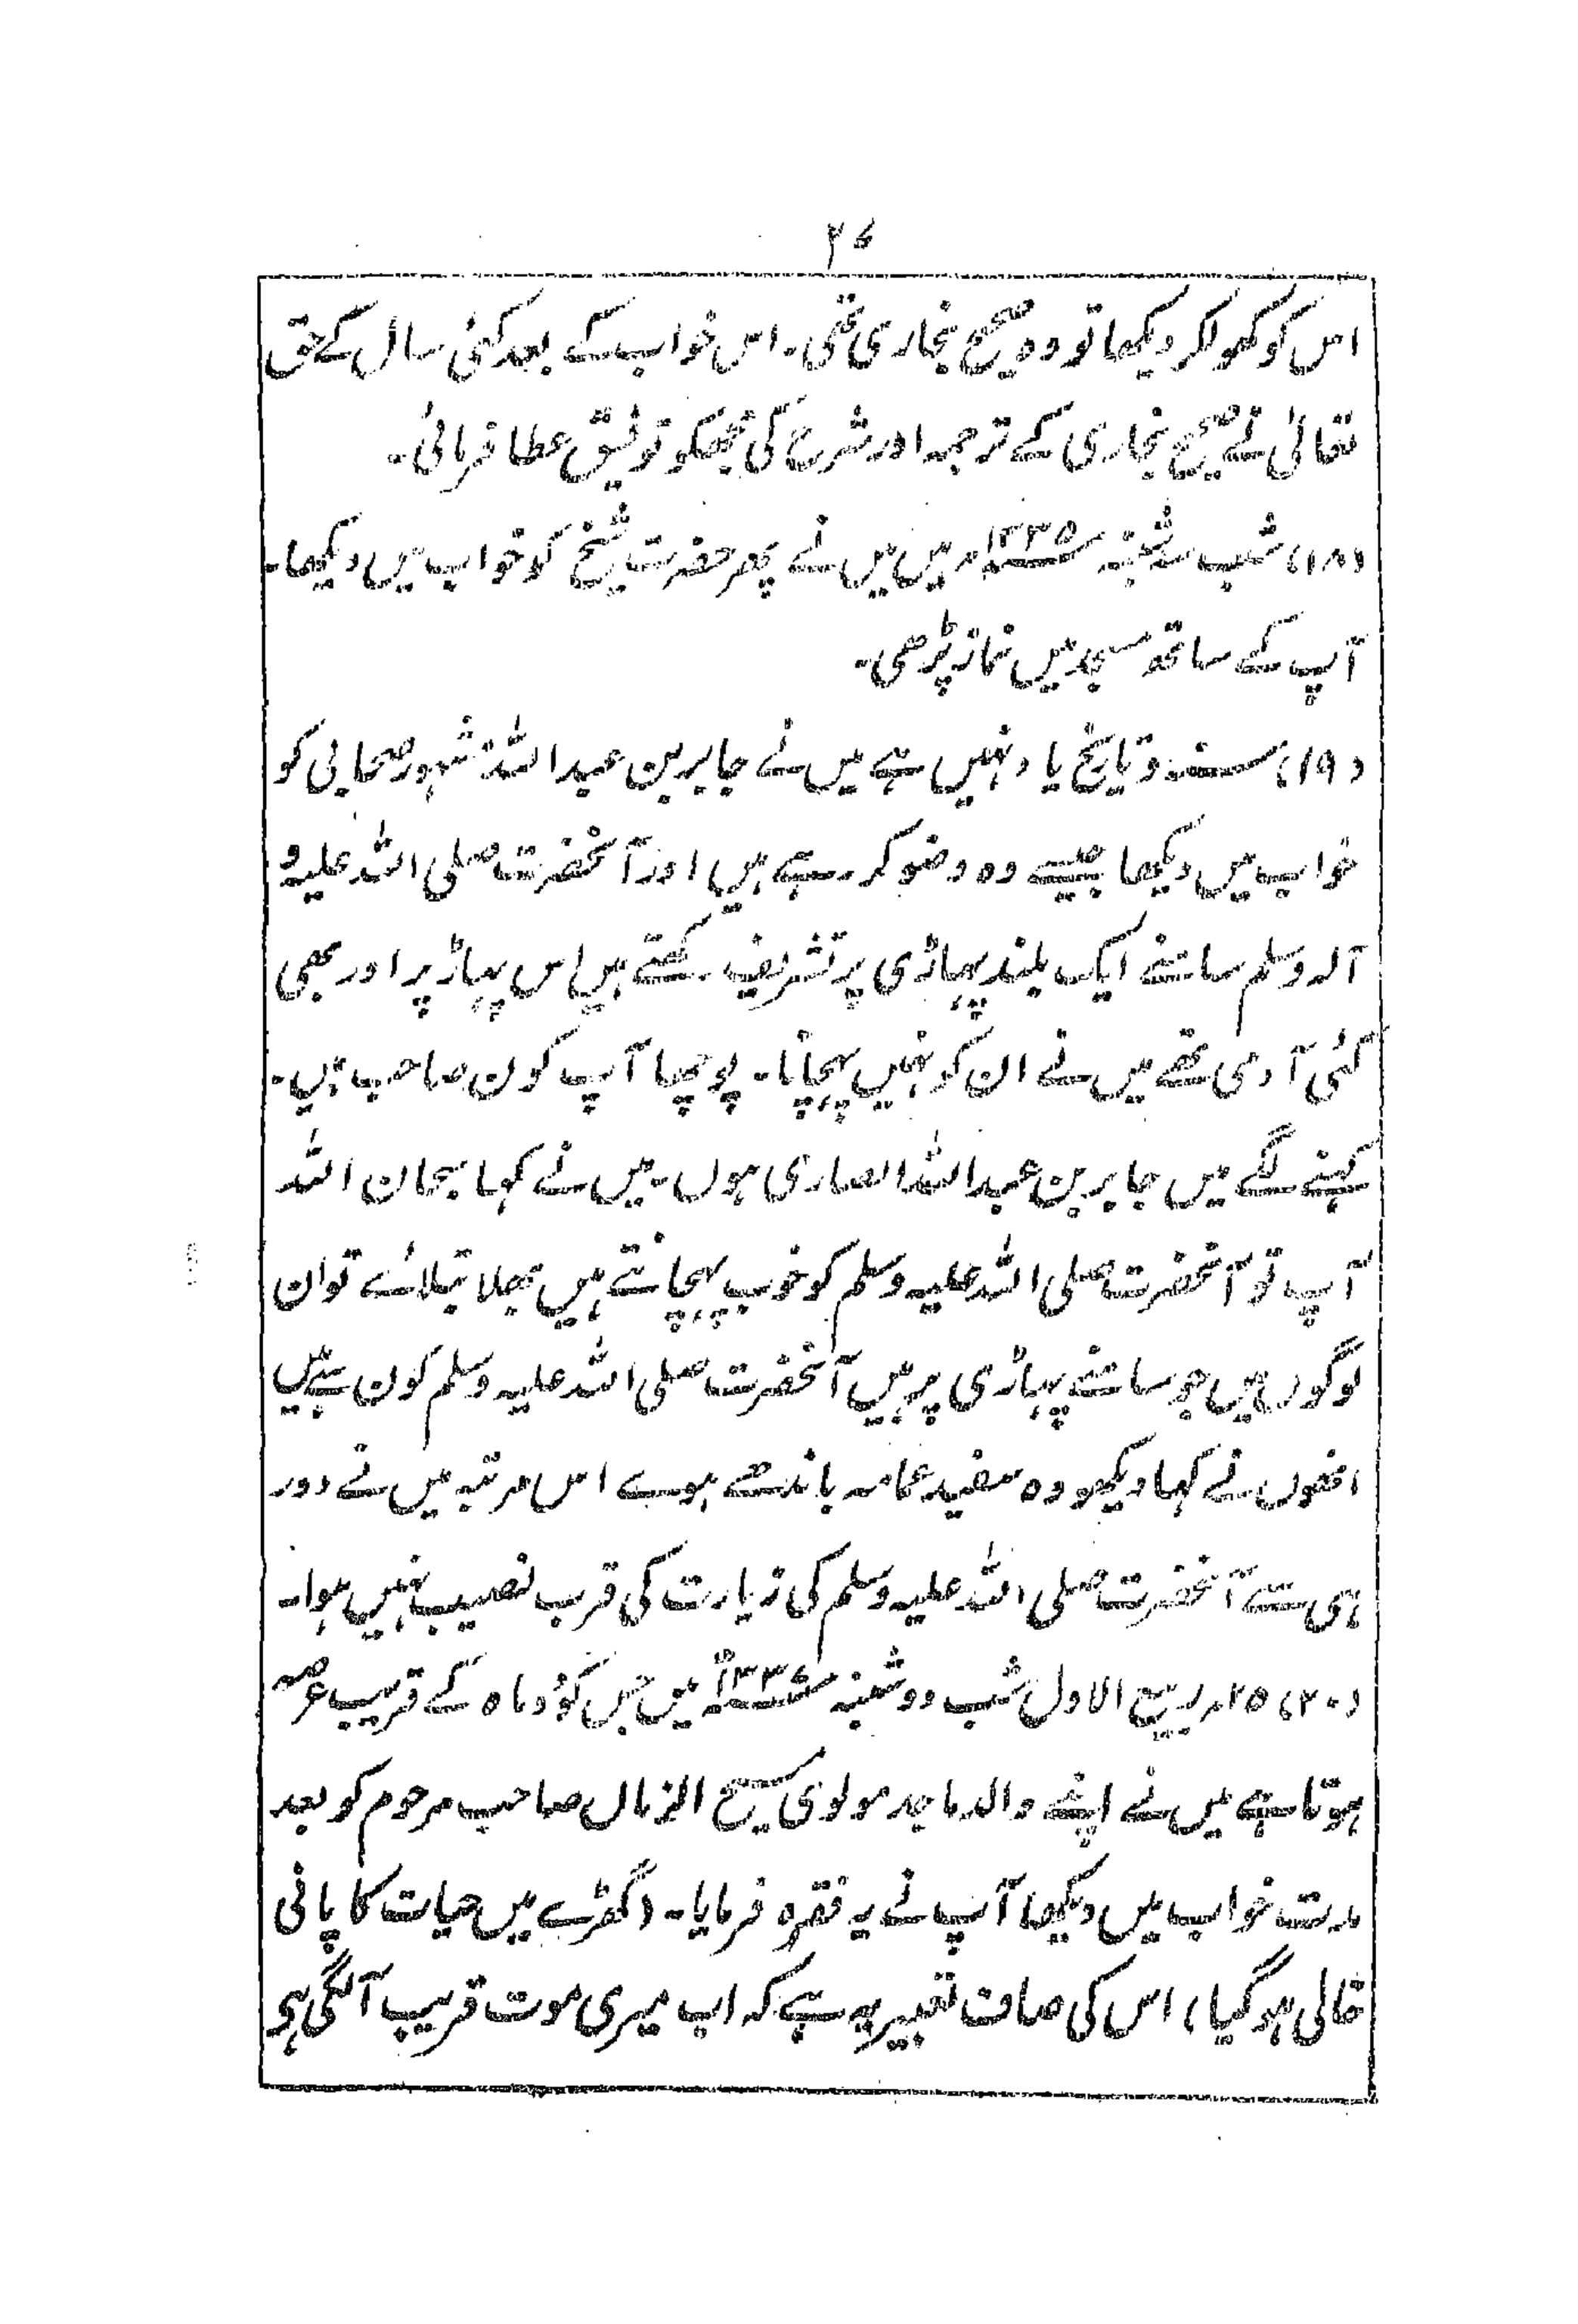 ۲۶
اس کو کھولکر دیکھا تو وہ صحیح بخاری تھی۔ اس خواب کے بعد کئی سال کے حق
تعالیٰ نے صحیح بخاری کے ترجمہ اور شرح کی مجھکو توفیق عطا فرمائی۔
(۱۸) شب سہ شنبہ ۱۳۳۵ میں میں نے پھر حضرت شیخ کو خواب میں دیکھا۔
آپ کے ساتھ مسجد میں نماز پڑھی۔
(۱۹) سنہ و تاریخ یاد نہیں ہے میں نے جابر بن عبد اللہ مشہور صحابی کو
خواب میں دیکھا جیسے وہ وضو کر رہے ہیں اور آنحضرت صلی اللہ علیہ و
آلہ وسلم سامنے ایک بلند پہاڑی پر تشریف رکھتے ہیں اس پہاڑ پر اور بھی
کئی آدمی تھے میں نے ان کو نہیں پہچانا۔ پوچھا آپ کون صاحب ہیں۔
کہنے لگے میں جابر بن عبد اللہ انصاری ہوں۔ میں نے کہا سبحان اللہ
آپ تو آنحضرت صلی اللہ علیہ وسلم کو خوب پہچانتے ہیں بھلا بتلائے تو ان
لوگوں میں جو سامنے پہاڑی پر ہیں آنحضرت صلی اللہ علیہ وسلم کون سے ہیں
انھوں نے کہا دیکھو وہ سفید عمامہ باندھے ہوے اس مرتبہ میں نے دور
ہی سے آنحضرت صلی اللہ علیہ وسلم کی زیارت کی قرب نصیب نہیں ہوا۔
(۲۰) ۲۵ ربیع الاول شب دوشنبہ میں جس کو دو ماہ کے قریب عرصہ
ہوتا ہے میں نے اپنے والد ماجد مولوی مسیح الزماں صاحب مرحوم کو بعد
مدت خواب میں دیکھا آپ نے یہ فقرہ فرمایا۔ (گھڑے میں حیات کا پانی
خالی ہو گیا) اس کی صاف تعبیر یہ ہے کہ اب میری موت قریب آلگی ہو